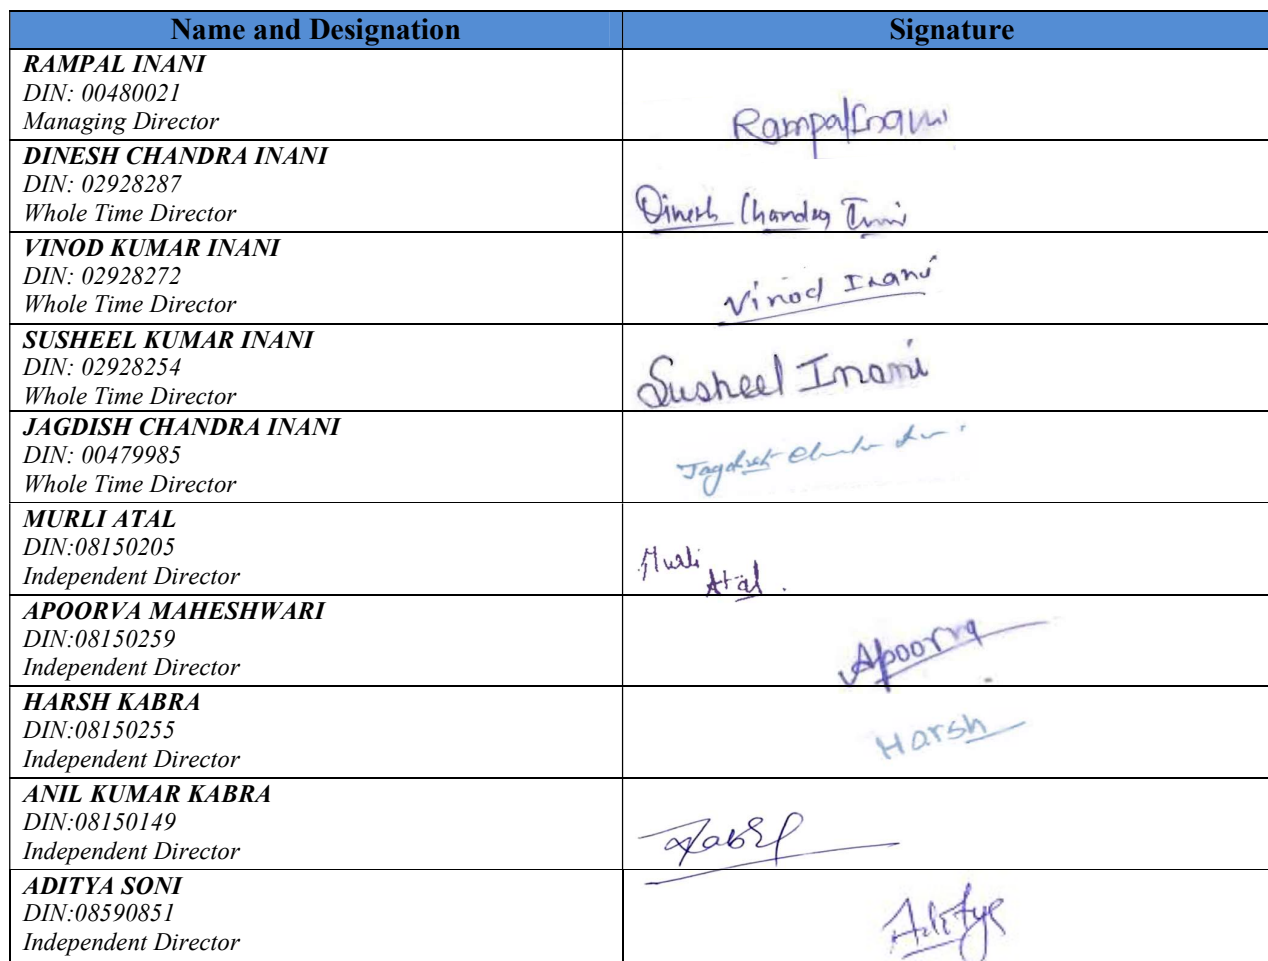 Name and Designation Signature
RAMPAL INANI
DIN: 00480021
Managing Director
Rampal Inani
DINESH CHANDRA INANI
DIN: 02928287
Whole Time Director
Dinesh Chandra Inani
VINOD KUMAR INANI
DIN: 02928272
Whole Time Director
Vinod Inani
SUSHEEL KUMAR INANI
DIN: 02928254
Whole Time Director
Susheel Inani
JAGDISH CHANDRA INANI
DIN: 00479985
Whole Time Director
Jagdish
MURLI ATAL
DIN:08150205
Independent Director
Murli
Atal.
APOORVA MAHESHWARI
DIN:08150259
Independent Director
Apoorva
HARSH KABRA
DIN:08150255
Independent Director
Harsh
ANIL KUMAR KABRA
DIN:08150149
Independent Director
ADITYA SONI
DIN:08590851
Independent Director
Aditya